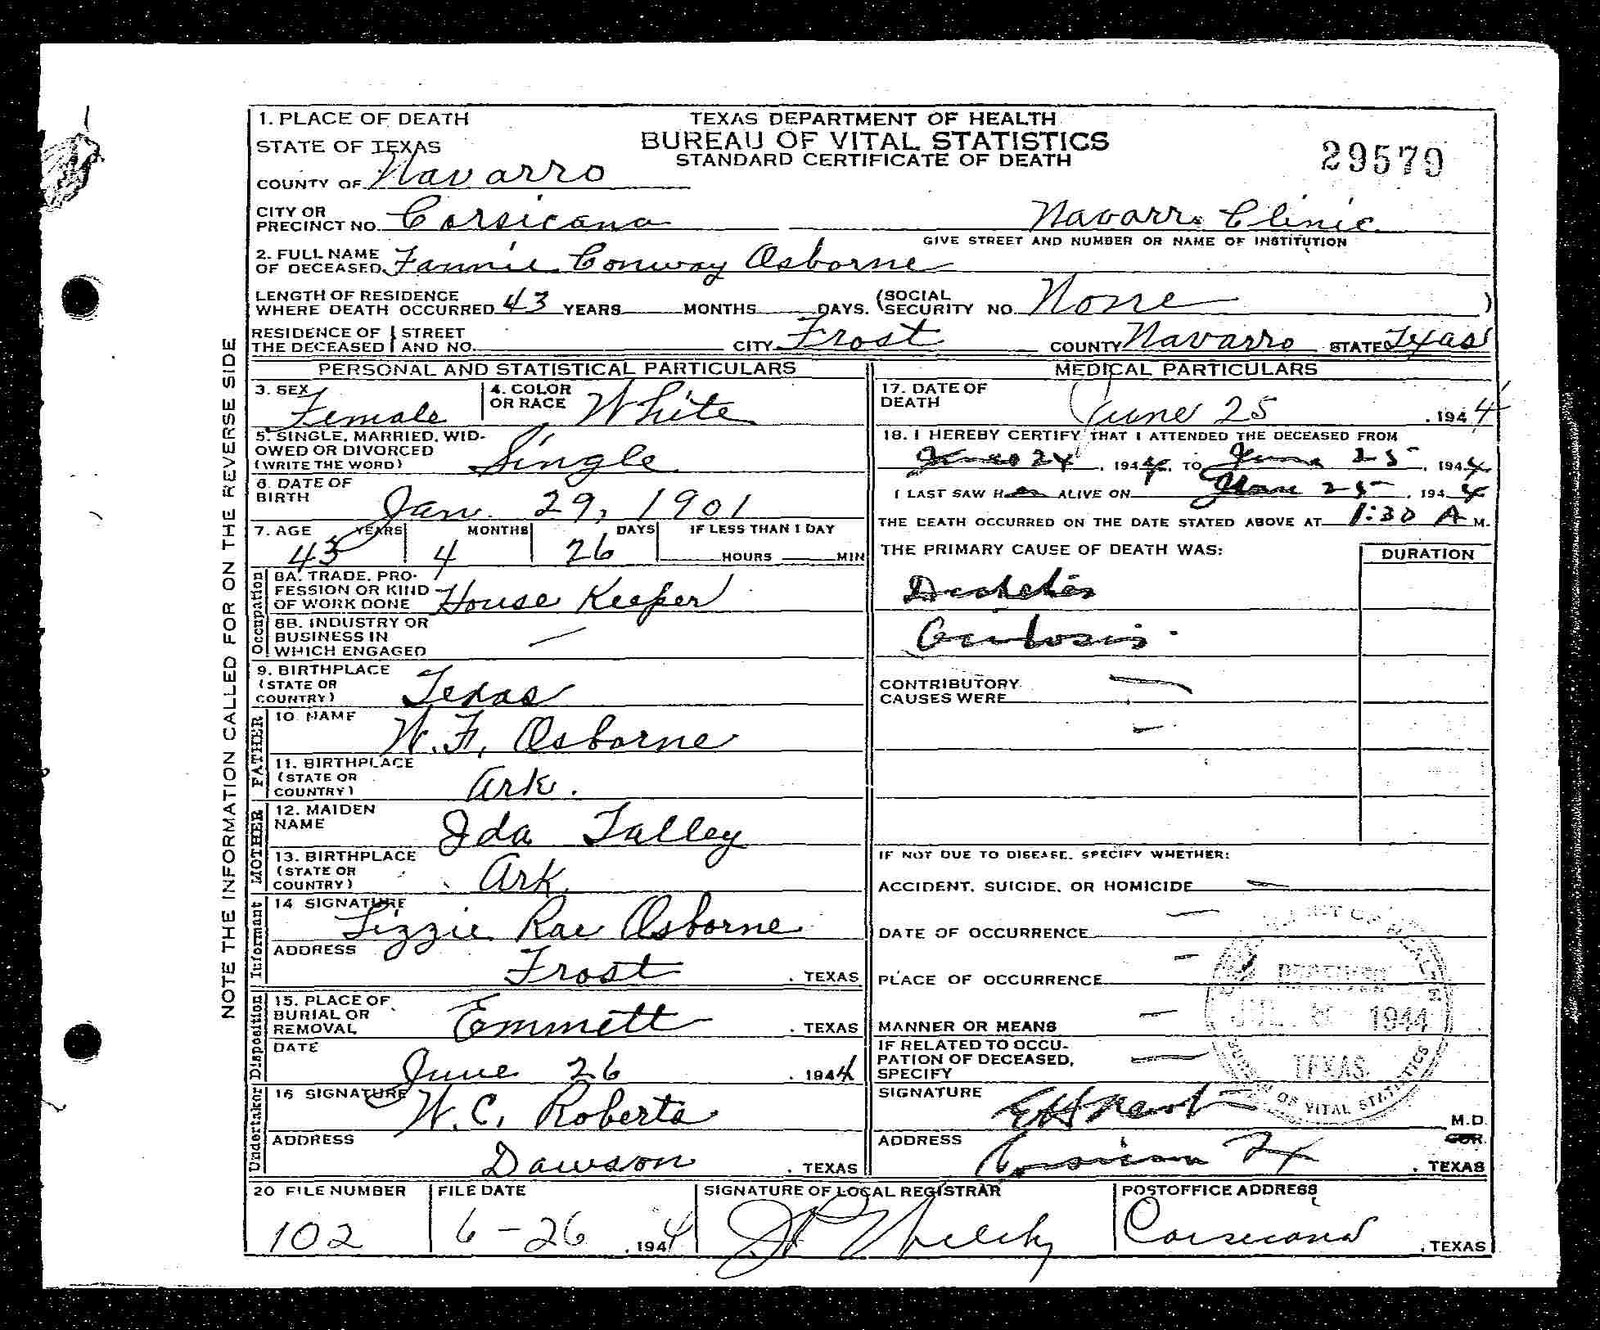 1. PLACE OF DEATH
STATE OF TEXAS
COUNTY OF Navarro
TEXAS DEPARTMENT OF HEALTH
BUREAU OF VITAL STATISTICS
STANDARD CERTIFICATE OF DEATH
29579
CITY OR PRECINCT NO. Corsicana
Navarro Clinic
GIVE STREET AND NUMBER OR NAME OF INSTITUTION
2. FULL NAME OF DECEASED Fannie Conway Osborne
LENGTH OF RESIDENCE WHERE DEATH OCCURRED 43 YEARS MONTHS DAYS. (SOCIAL SECURITY NO. None )
RESIDENCE OF THE DECEASED STREET AND NO. CITY Frost COUNTY Navarro STATE Texas
NOTE THE INFORMATION CALLED FOR ON THE REVERSE SIDE
PERSONAL AND STATISTICAL PARTICULARS
3. SEX Female
4. COLOR OR RACE White
5. SINGLE, MARRIED, WIDOWED OR DIVORCED (WRITE THE WORD) Single
6. DATE OF BIRTH Jan. 29, 1901
7. AGE YEARS MONTHS DAYS IF LESS THAN 1 DAY
43 4 26 HOURS MIN
Occupation
8A. TRADE, PROFESSION OR KIND OF WORK DONE House Keeper
8B. INDUSTRY OR BUSINESS IN WHICH ENGAGED —
9. BIRTHPLACE (STATE OR COUNTRY) Texas
FATHER
10. NAME W. F. Osborne
11. BIRTHPLACE (STATE OR COUNTRY) Ark.
MOTHER
12. MAIDEN NAME Ida Talley
13. BIRTHPLACE (STATE OR COUNTRY) Ark.
Informant
14 SIGNATURE Lizzie Rae Osborne
ADDRESS Frost . TEXAS
Disposition
15. PLACE OF BURIAL OR REMOVAL Emmett . TEXAS
DATE June 26 . 1944
Undertaker
16 SIGNATURE W. C. Roberts
ADDRESS Dawson . TEXAS
MEDICAL PARTICULARS
17. DATE OF DEATH June 25 . 1944
18. I HEREBY CERTIFY THAT I ATTENDED THE DECEASED FROM
June 24 , 1944, TO June 25 , 1944
I LAST SAW Her ALIVE ON June 25 , 1944
THE DEATH OCCURRED ON THE DATE STATED ABOVE AT 1:30 A M.
THE PRIMARY CAUSE OF DEATH WAS: DURATION
Diabetes
CONTRIBUTORY CAUSES WERE —
—
IF NOT DUE TO DISEASE, SPECIFY WHETHER:
ACCIDENT, SUICIDE, OR HOMICIDE —
DATE OF OCCURRENCE —
PLACE OF OCCURRENCE —
MANNER OR MEANS —
IF RELATED TO OCCUPATION OF DECEASED, SPECIFY —
SIGNATURE M.D.
COR.
ADDRESS Corsicana Tx . TEXAS
OF HEALTH
1944
TEXAS
BUREAU OF VITAL STATISTICS
20 FILE NUMBER 102
FILE DATE 6-26 , 1944
SIGNATURE OF LOCAL REGISTRAR
POSTOFFICE ADDRESS Corsicana , TEXAS